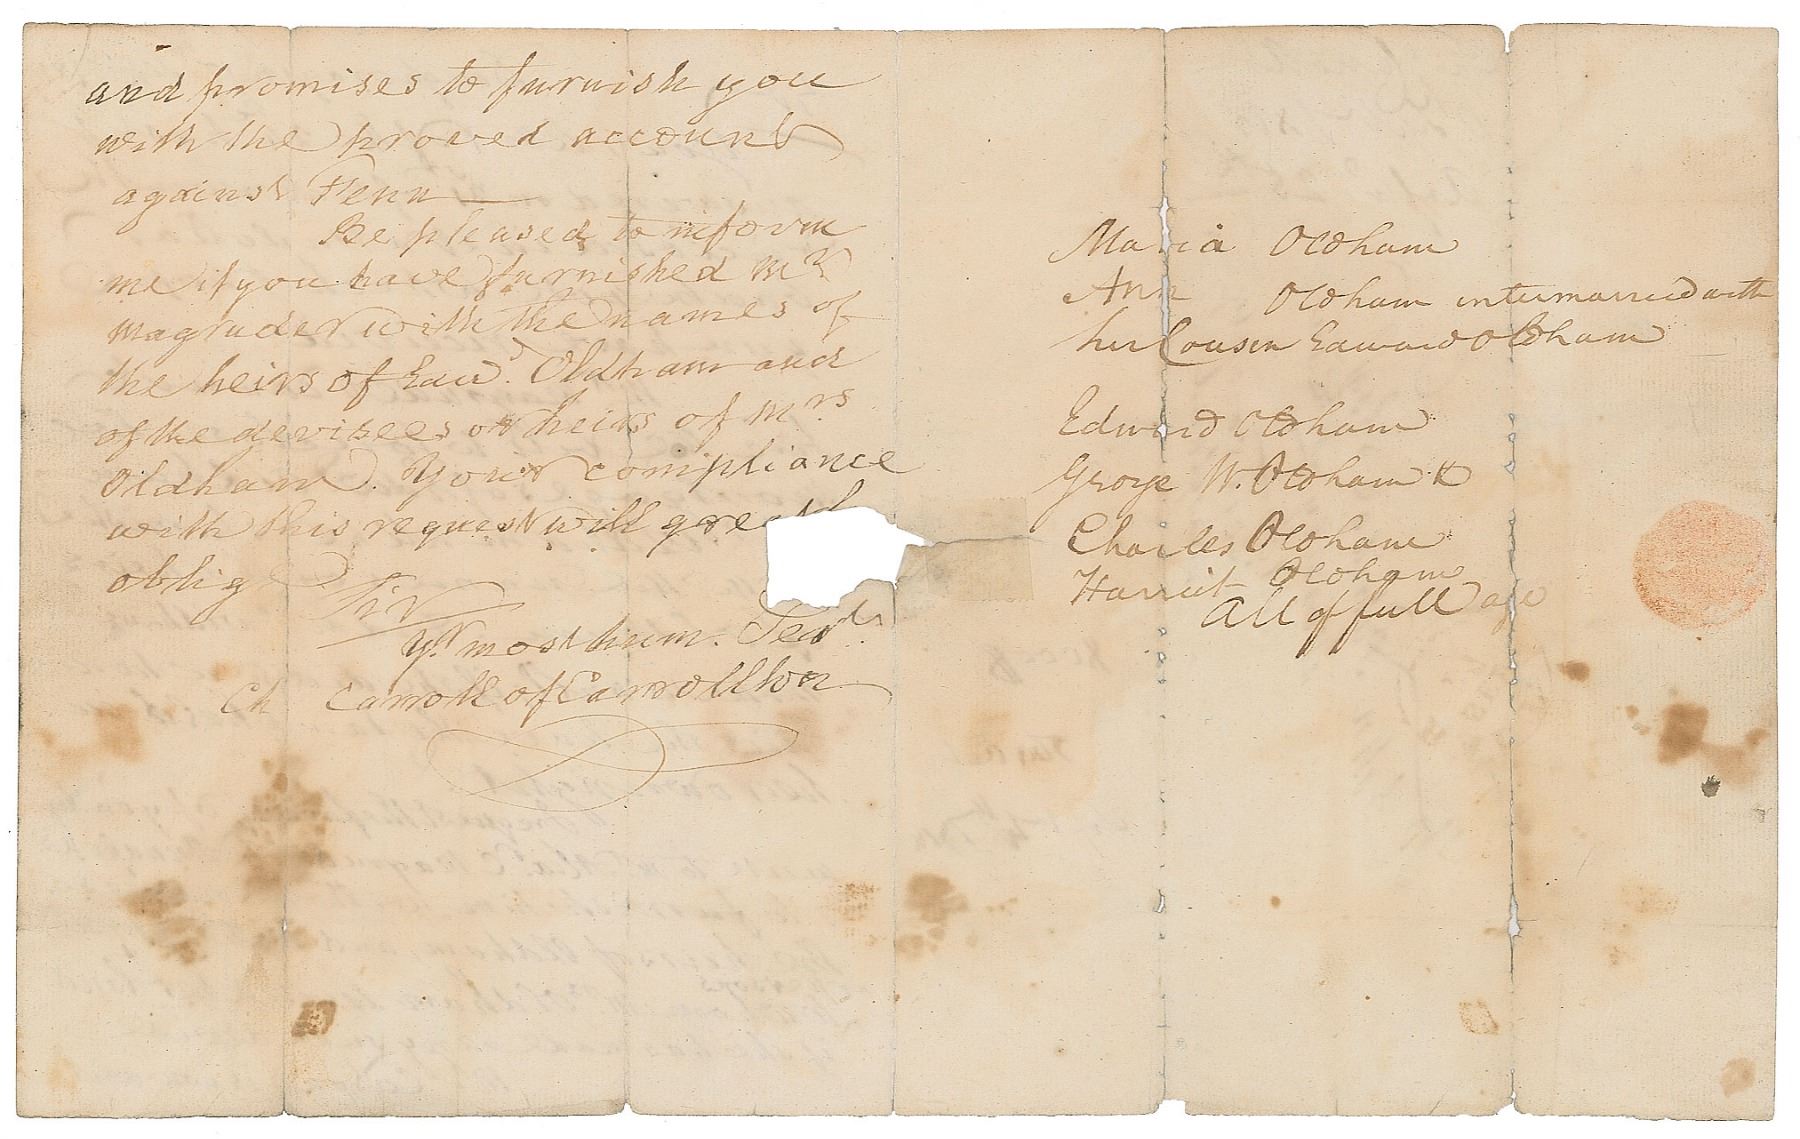 and promises to furnish you
with the proved account
against Fenn
Be pleased to inform
me if you have furnished Mr
Magruder with the names of
the heirs of Edwd. Oldham and
of the devisees or heirs of Mrs
Oldham. Your compliance
with this request will
oblige
Sir
yr. most hum. Servt.
Ch Carroll of Carrollton
Maria Oldham
Ann Oldham intermarried with
her Cousin Edward Oldham
Edward Oldham
George W. Oldham
Charles Oldham
Harriet Oldham
All of full age